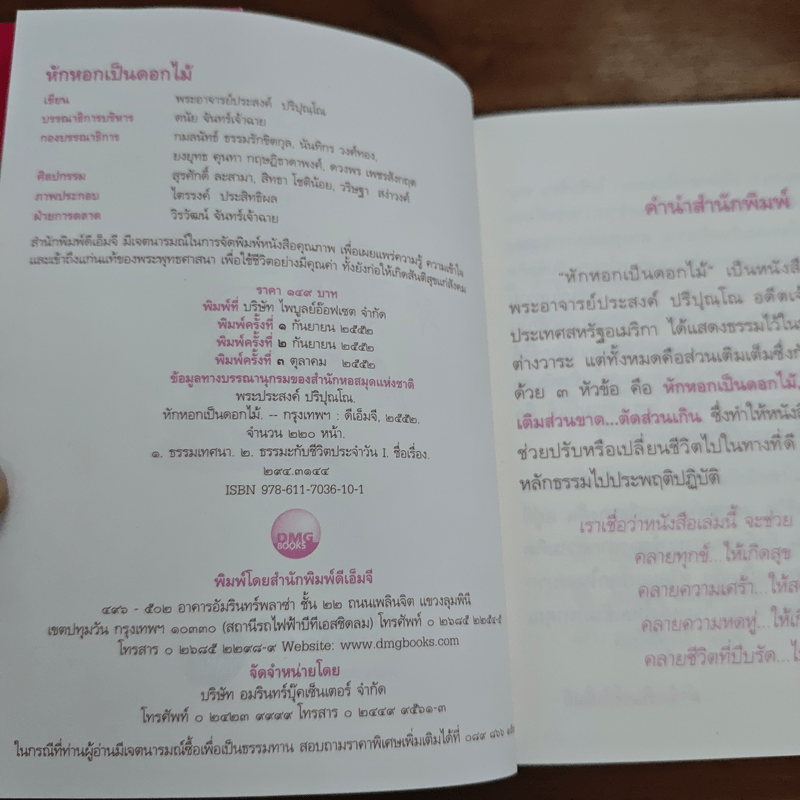 หักหอกเป็นดอกไม้
เขียน พระอาจารย์ประสงค์ ปริปุณฺโณ
บรรณาธิการบริหาร ดนัย จันทร์เจ้าฉาย
กองบรรณาธิการ กมลนัทธ์ ธรรมรักขิตกุล, นันทิกร วงศ์ทอง,
ยงยุทธ คุนทา กฤษฎิธาดาพงศ์, ดวงพร เพชรสังกฤต
ศิลปกรรม สุรศักดิ์ ละสามา, สิทธา โชติน้อย, วริษฐา สง่าวงศ์
ภาพประกอบ ไตรรงค์ ประสิทธิผล
ฝ่ายการตลาด วิรวัฒน์ จันทร์เจ้าฉาย
สำนักพิมพ์ดีเอ็มจี มีเจตนารมณ์ในการจัดพิมพ์หนังสือคุณภาพ เพื่อเผยแพร่ความรู้ ความเข้าใจ
และเข้าถึงแก่นแท้ของพระพุทธศาสนา เพื่อใช้ชีวิตอย่างมีคุณค่า ทั้งยังก่อให้เกิดสันติสุขแก่สังคม
ราคา ๑๔๙ บาท
พิมพ์ที่ บริษัท ไพบูลย์อ๊อฟเซต จำกัด
พิมพ์ครั้งที่ ๑ กันยายน ๒๕๕๒
พิมพ์ครั้งที่ ๒ กันยายน ๒๕๕๒
พิมพ์ครั้งที่ ๓ ตุลาคม ๒๕๕๒
ข้อมูลทางบรรณานุกรมของสำนักหอสมุดแห่งชาติ
พระประสงค์ ปริปุณฺโณ.
หักหอกเป็นดอกไม้. -- กรุงเทพฯ : ดีเอ็มจี, ๒๕๕๒.
จำนวน ๒๒๐ หน้า.
๑. ธรรมเทศนา. ๒. ธรรมะกับชีวิตประจำวัน I. ชื่อเรื่อง.
๒๙๔.๓๑๔๔
ISBN 978-611-7036-10-1
DMG
BOOKS
พิมพ์โดยสำนักพิมพ์ดีเอ็มจี
๔๙๖ - ๕๐๒ อาคารอัมรินทร์พลาซ่า ชั้น ๒๒ ถนนเพลินจิต แขวงลุมพินี
เขตปทุมวัน กรุงเทพฯ ๑๐๓๓๐ (สถานีรถไฟฟ้าบีทีเอสชิดลม) โทรศัพท์ ๐ ๒๖๘๕
โทรสาร ๐ ๒๖๘๕ ๒๒๙๘-๙ Website: www.dmgbooks.com
จัดจำหน่ายโดย
บริษัท อมรินทร์บุ๊คเซ็นเตอร์ จำกัด
โทรศัพท์ ๐ ๒๔๒๓ ๙๙๙๙ โทรสาร ๐ ๒๔๔๙ ๙๕๖๑-๓
ในกรณีที่ท่านผู้อ่านมีเจตนารมณ์ซื้อเพื่อเป็นธรรมทาน สอบถามราคาพิเศษเพิ่มเติมได้ที่ ๐๘๙ ๘๖๖
คำนำสำนักพิมพ์
"หักหอกเป็นดอกไม้" เป็นหนังสือ
พระอาจารย์ประสงค์ ปริปุณฺโณ อดีตเจ้
ประเทศสหรัฐอเมริกา ได้แสดงธรรมไว้ใน
ต่างวาระ แต่ทั้งหมดคือส่วนเติมเต็มซึ่งกั
ด้วย ๓ หัวข้อ คือ หักหอกเป็นดอกไม้,
เติมส่วนขาด...ตัดส่วนเกิน ซึ่งทำให้หนังสื
ช่วยปรับหรือเปลี่ยนชีวิตไปในทางที่ดี
หลักธรรมไปประพฤติปฏิบัติ
เราเชื่อว่าหนังสือเล่มนี้ จะช่วย
คลายทุกข์...ให้เกิดสุข
คลายความเศร้า...ให้ส
คลายความหดหู่...ให้เกิ
คลายชีวิตที่บีบรัด...